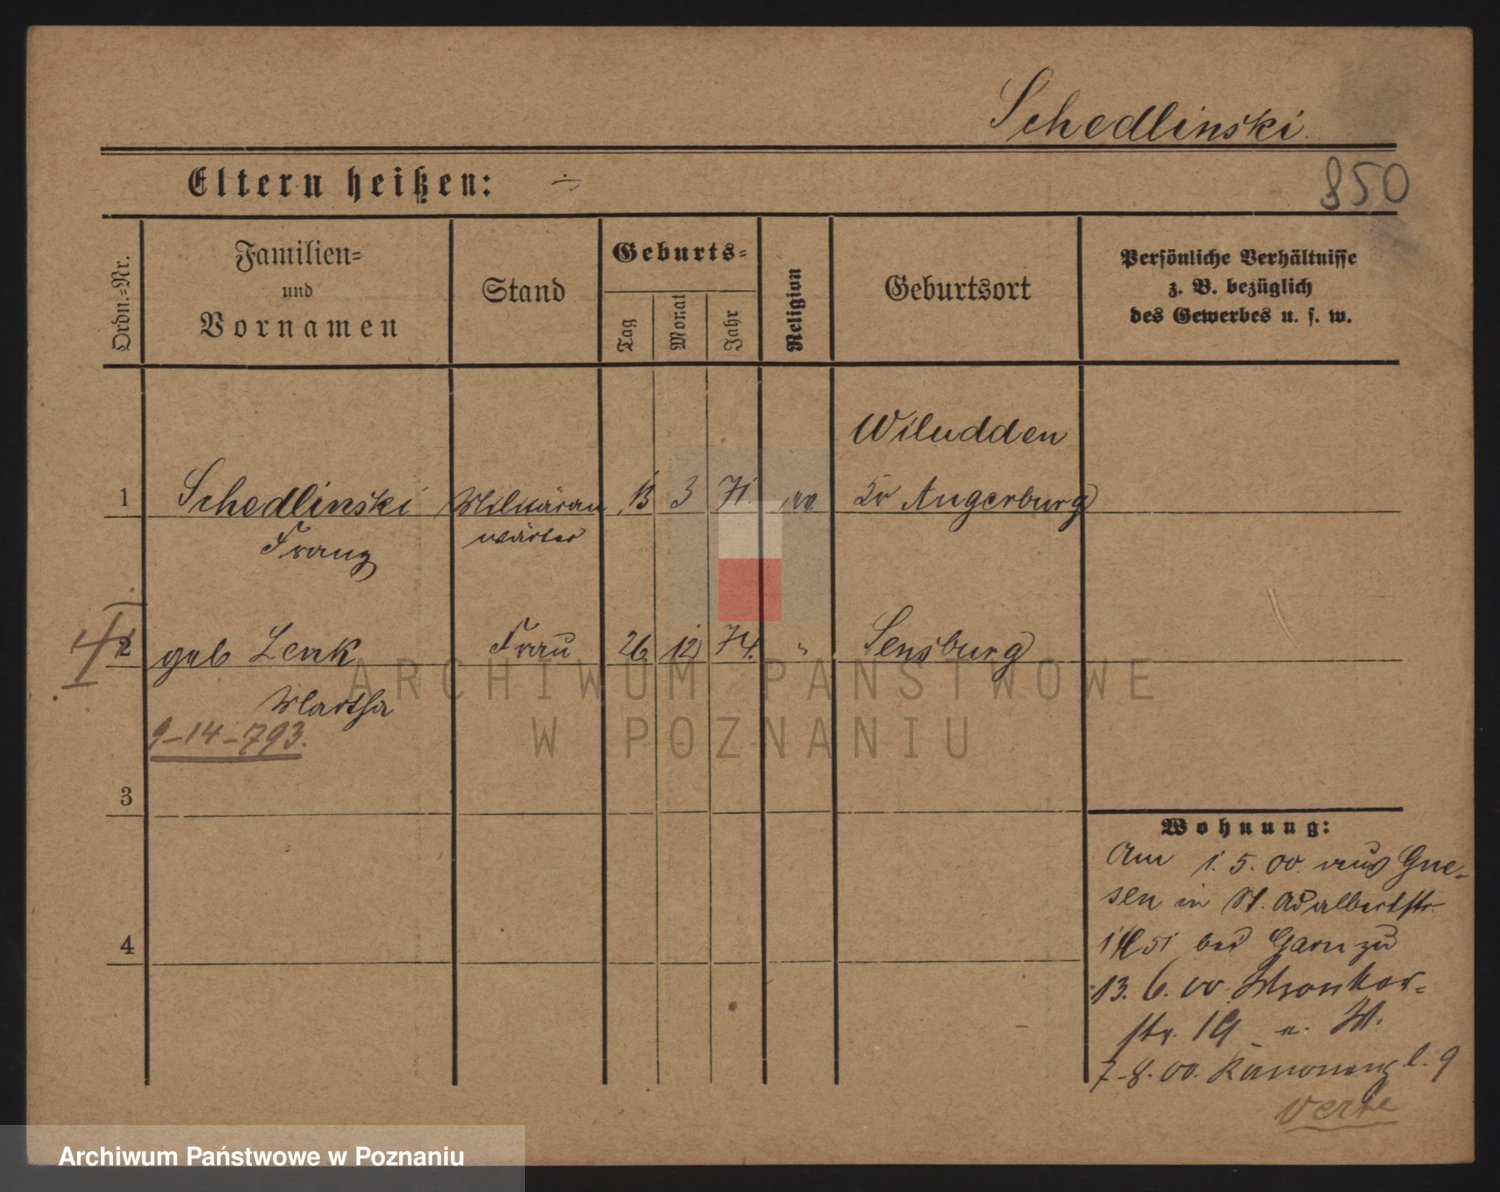 Schedlinski
850
Eltern heißen: ÷
Ordn.-Nr.
Familien-
und
Vornamen
Stand
Geburts-
Tag
Monat
Jahr
Religion
Geburtsort
Persönliche Verhältnisse
z. B. bezüglich
des Gewerbes u. s. w.
Wiludden
1 Schedlinski Militäran 13 3 71. Kr Angerburg
Franz wärter
2 geb Lenk Frau 26 12 74. " Sensburg
Martha
9-14-793.
3
4
Wohnung:
Am 1. 5. 00. aus Gne-
sen in St. Adalbertstr.
bei
13. 6. 00. Wronker-
str. 19
7-8.00. Kanonenpl. 9
verte
ARCHIWUM PAŃSTWOWE
W POZNANIU
Archiwum Państwowe w Poznaniu